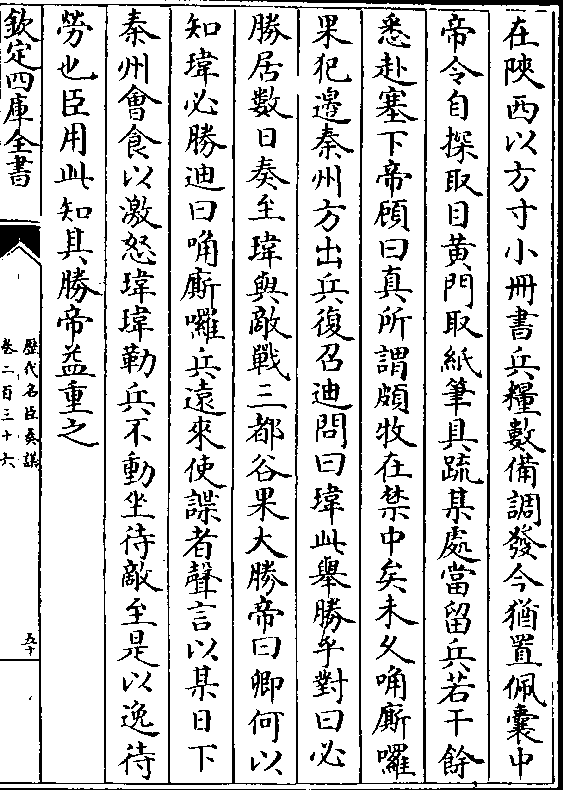 在陜西以方寸小冊書兵糧數備調發今猶置佩囊中
帝令自探取目黃門取紙筆具疏某處當留兵若干餘
悉赴塞下帝顧曰真所謂頗牧在禁中矣未久唃廝囉
果犯邊秦州方出兵復召迪問曰瑋此舉勝乎對曰必
勝居數日奏至瑋與敵戰三都谷果大勝帝曰卿何以
知瑋必勝迪曰唃廝囉兵遠來使諜者聲言以某日下
秦州會食以激怒瑋瑋勒兵不動坐待敵至是以逸待
勞也臣用此知其勝帝益重之
欽定四庫全書
歷代名臣奏議
卷二百三十六
五十